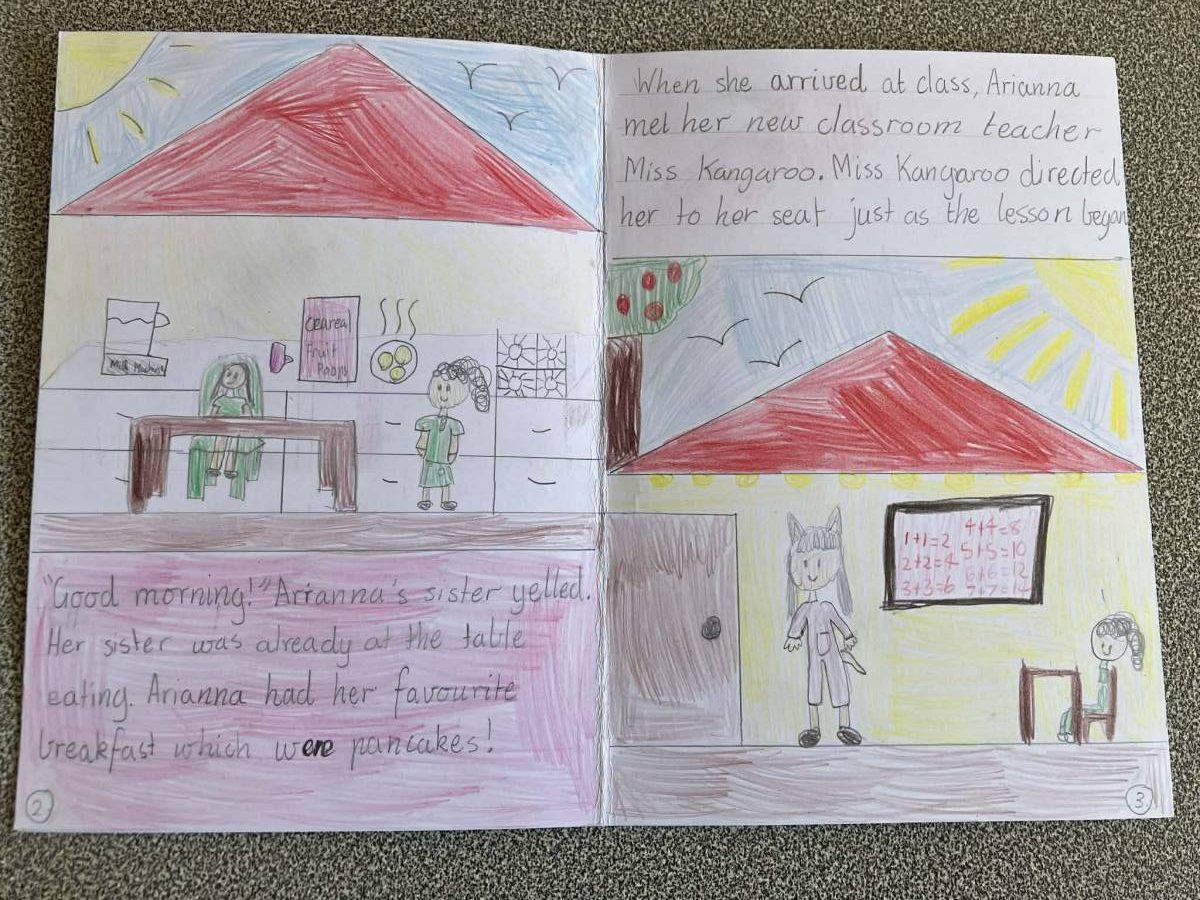 Milk Machine
Ceareal
Fruit
Poops
"Good morning!" Arianna's sister yelled.
Her sister was already at the table
eating. Arianna had her favourite
breakfast which were pancakes!
2
When she arrived at class, Arianna
met her new classroom teacher
Miss Kangaroo. Miss Kangaroo directed
her to her seat just as the lesson began
1+1=2
2+2=4
3+3=6
4+4=8
5+5=10
6+6=12
7+7=14
3